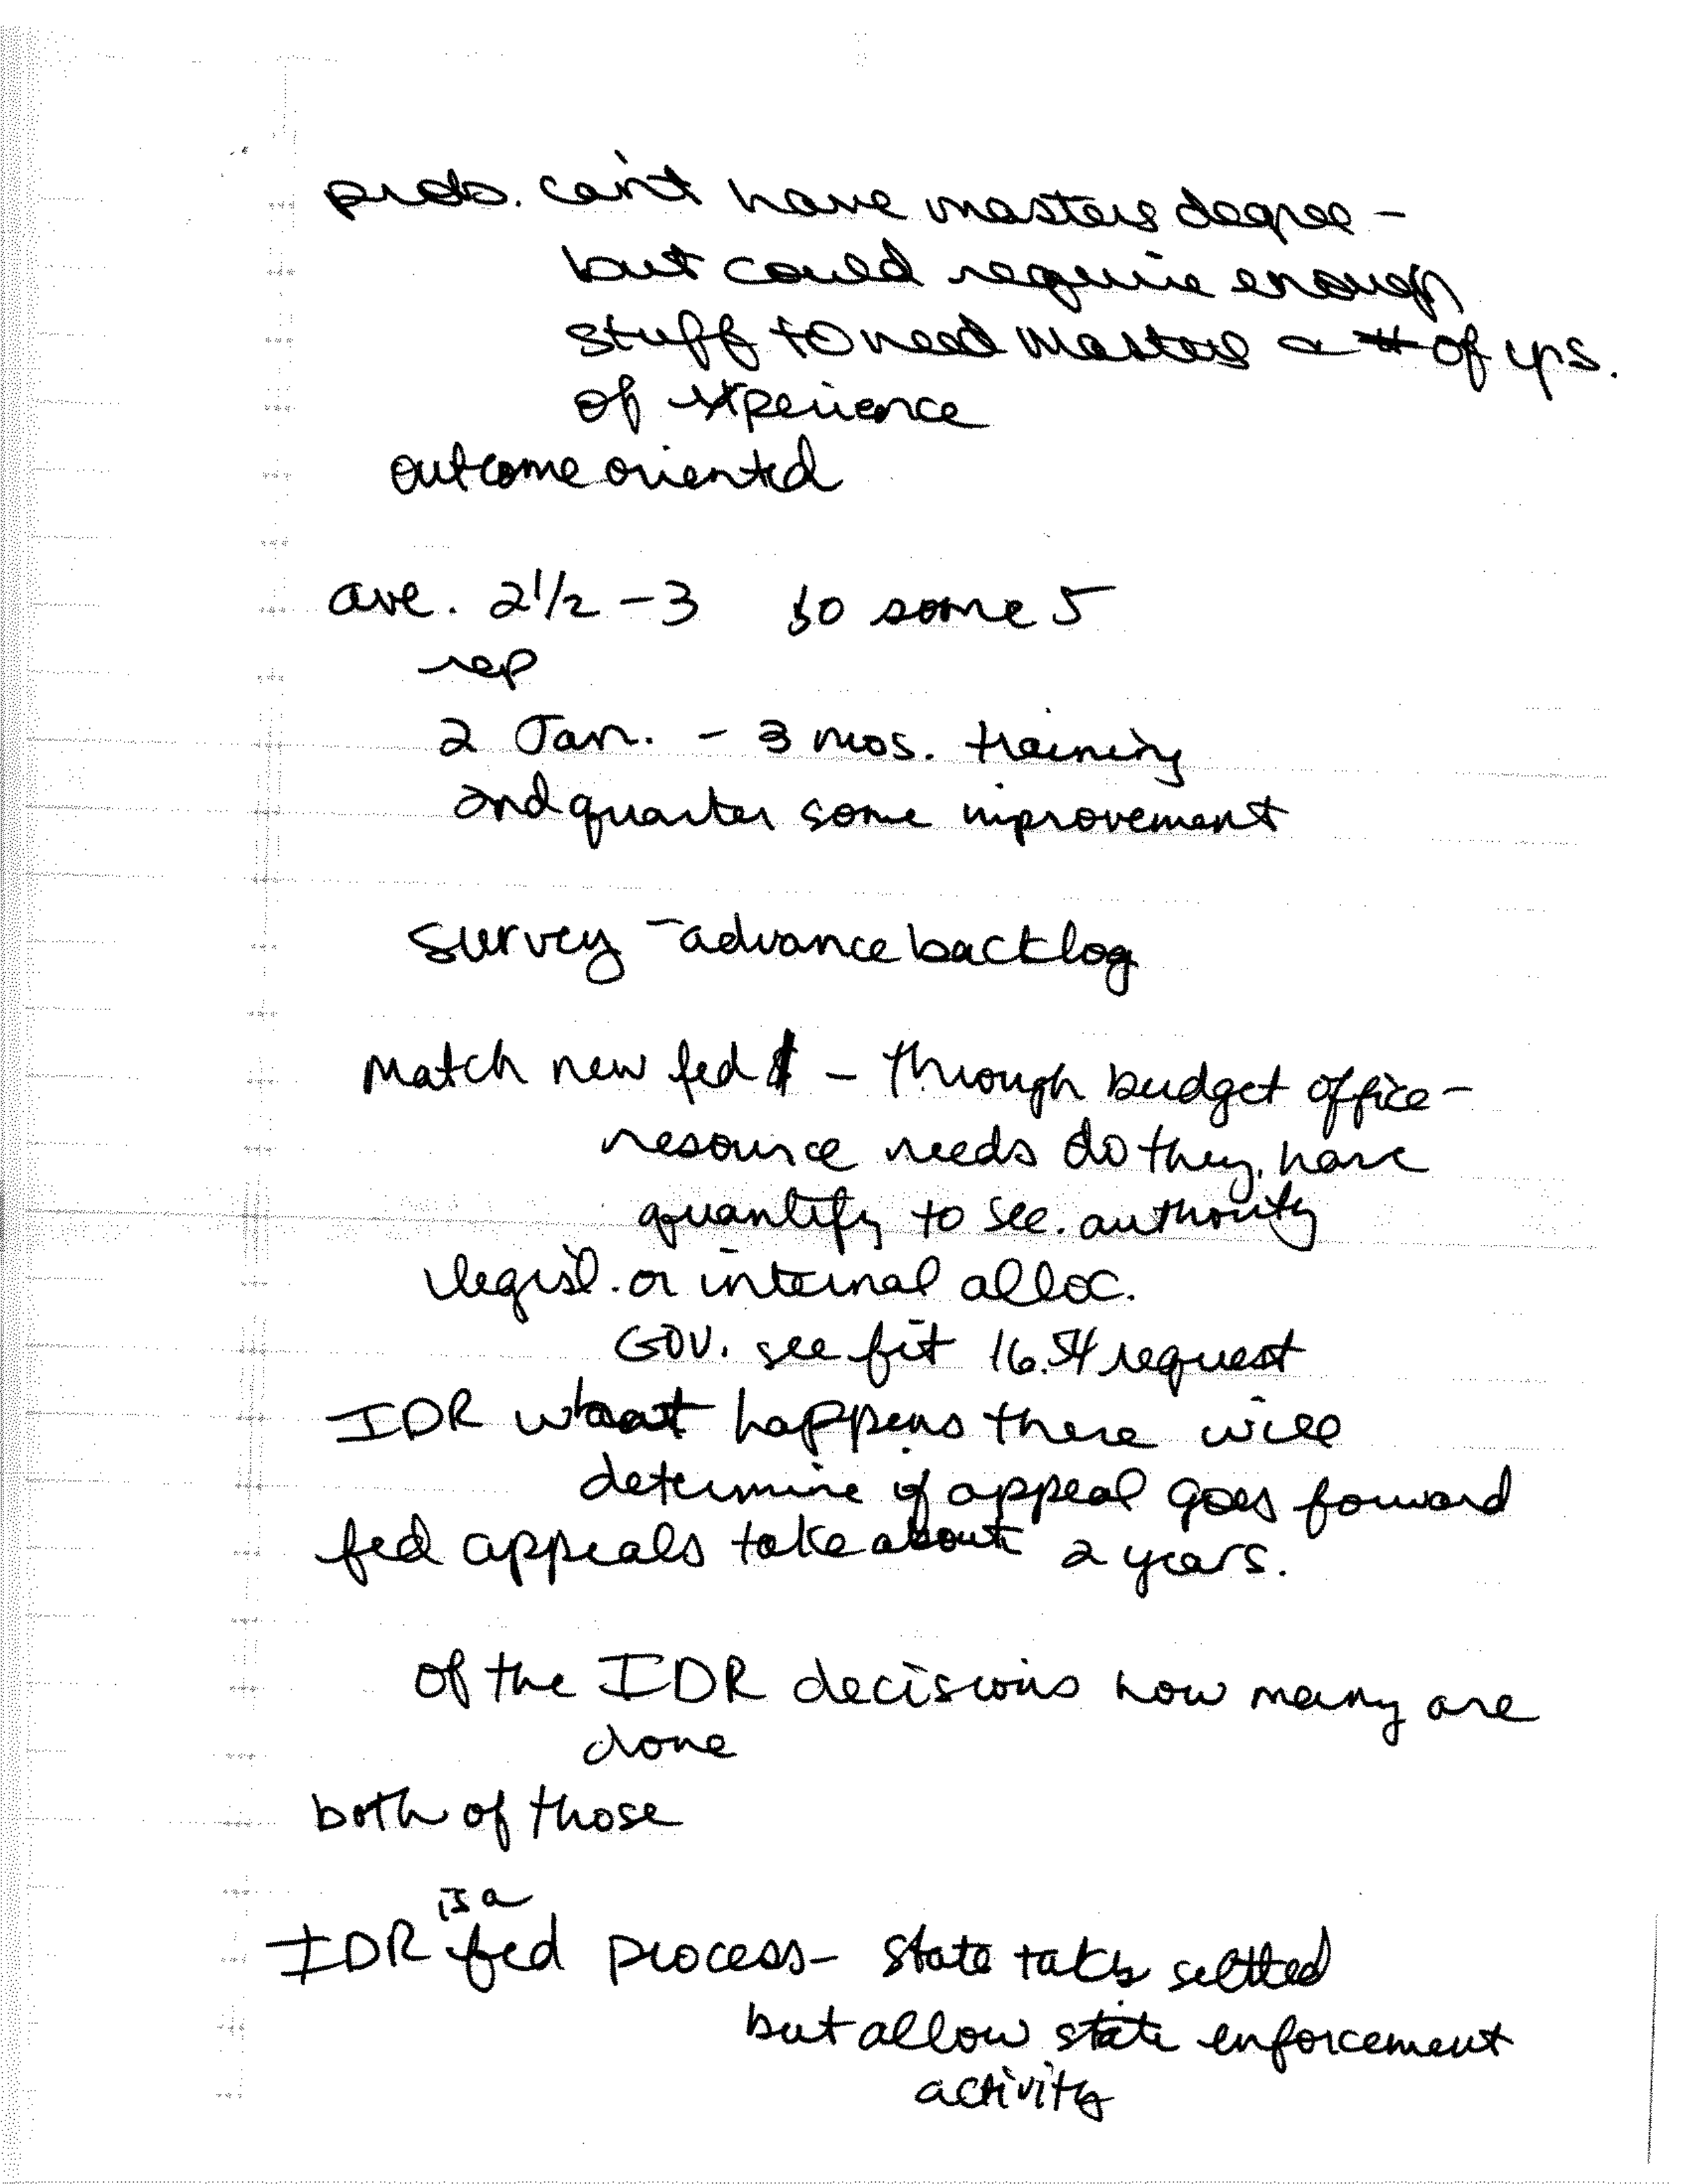 prob. can't have masters degree -
but could require enough
stuff to need Masters a # of yrs.
of experience
outcome oriented
ave. 2 1/2 - 3 so some 5
rep
2 Jan. - 3 mos. training
2nd quarter some improvement
survey - advance backlog
Match new fed $ - through budget office -
resource needs do they have
quantify to see. authority
legisl. or internal alloc.
GOV. see fit 16.54 request
IDR what happens there will
determine if appeal goes forward
fed appeals take about 2 years.
of the IDR decisions how many are
done
both of those
is a
IDR fed process - state settled
but allow state enforcement
activity